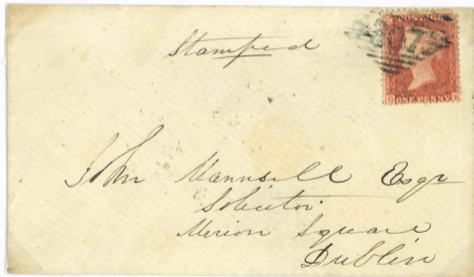 Stamped
POSTAGE
ONE PENNY
John Mannsell Esqr
Solicitor
Merion Square
Dublin